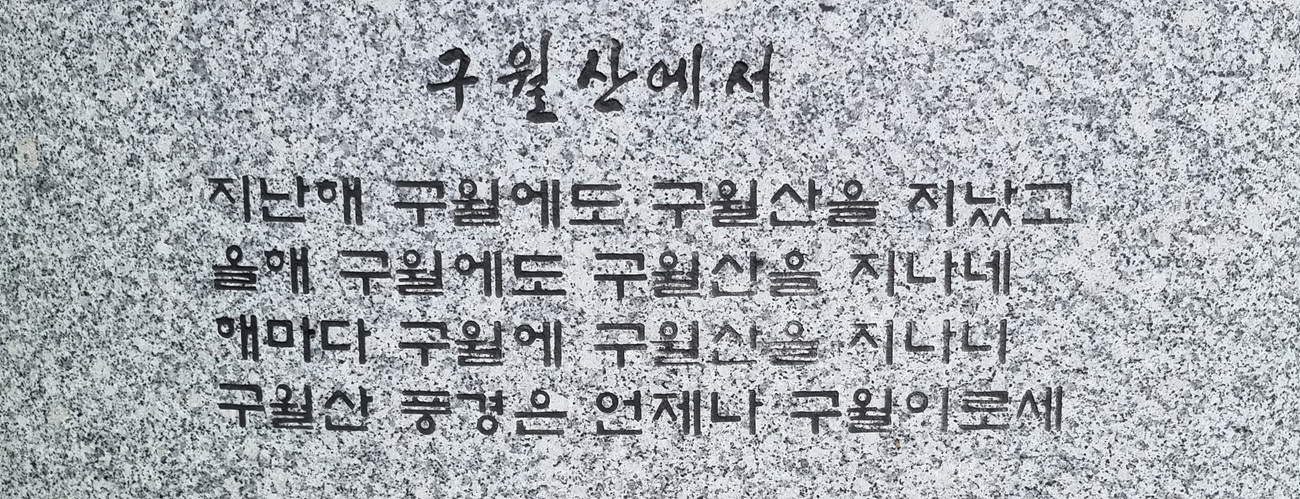 구월산에서
지난해 구월에도 구월산을 지났고
올해 구월에도 구월산을 지나네
해마다 구월에 구월산을 지나니
구월산 풍경은 언제나 구월이로세